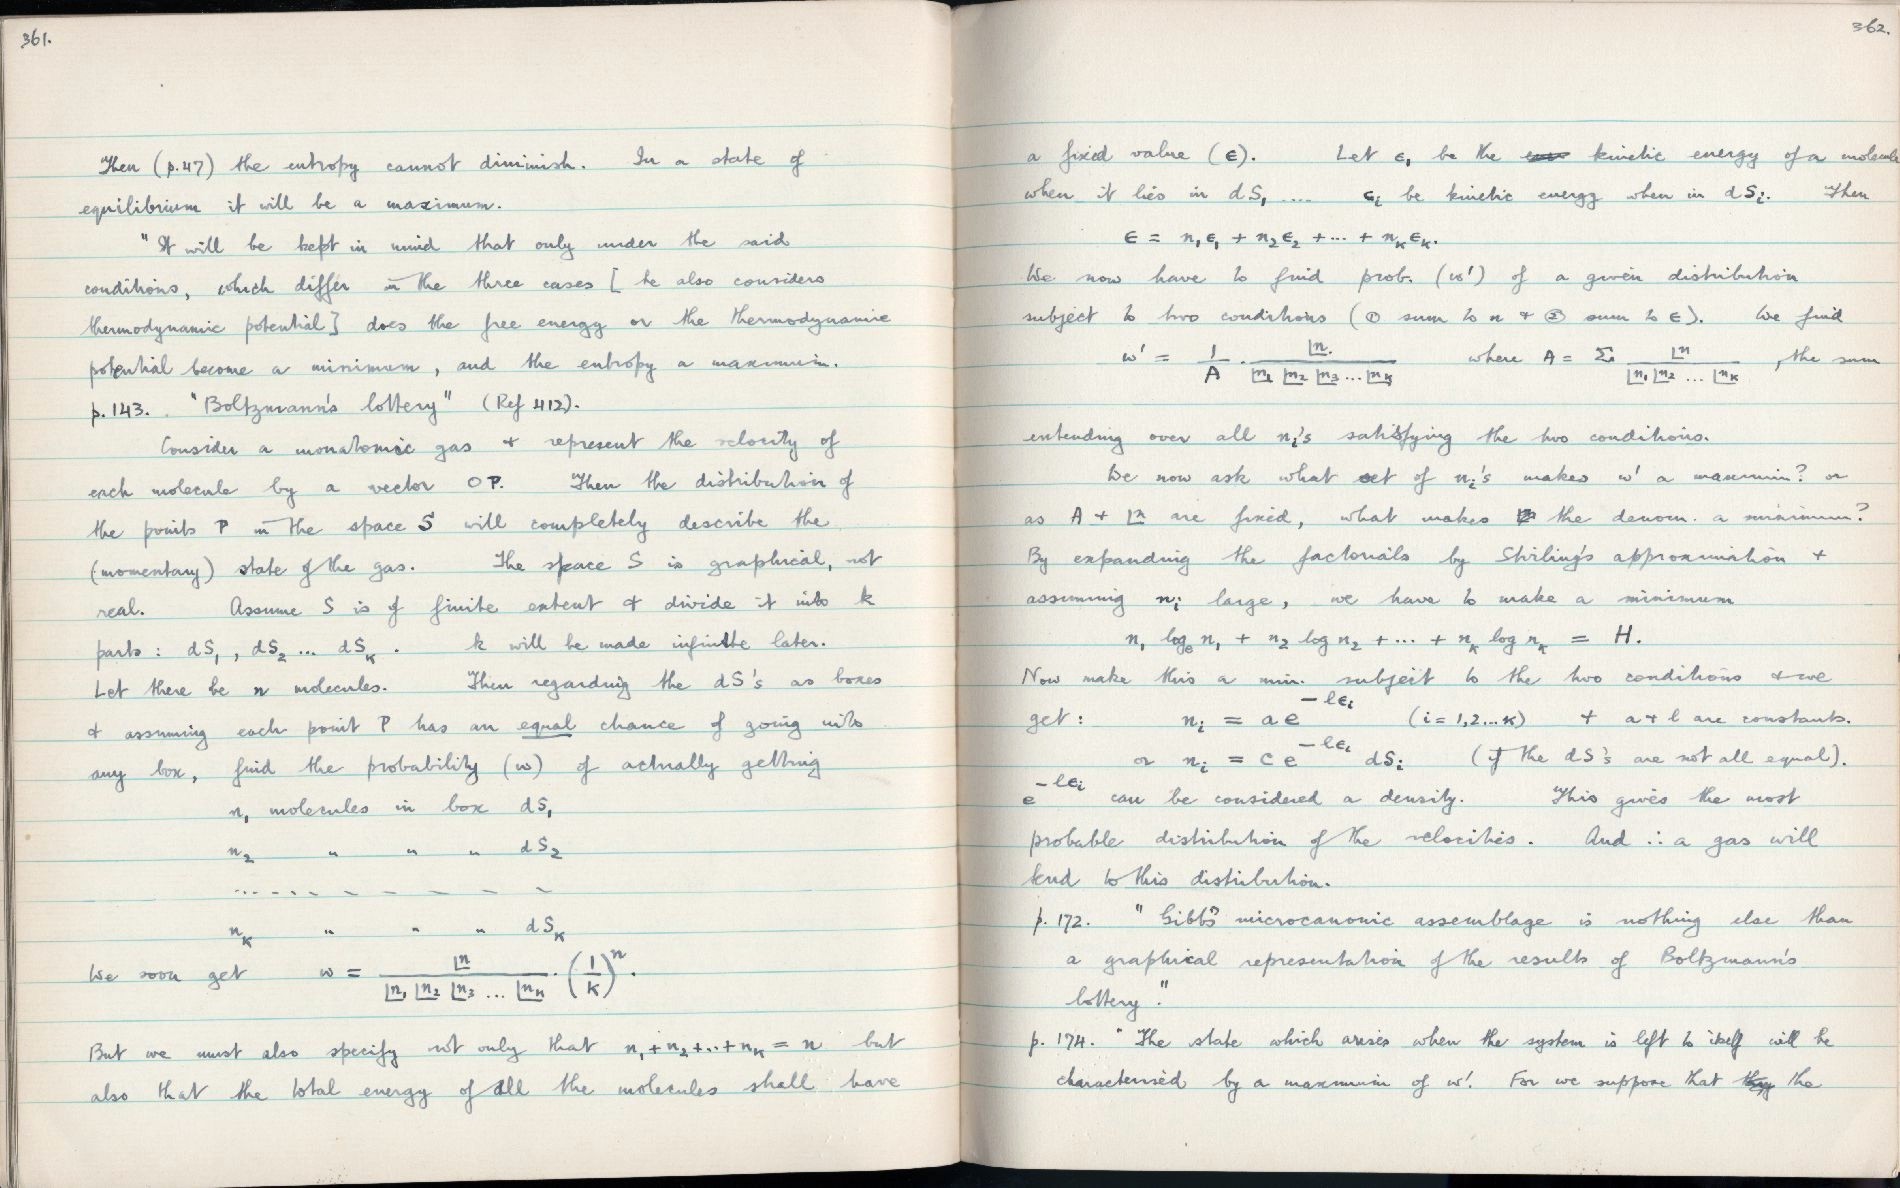 361.
Then (p.47) the entropy cannot diminish. In a state of
equilibrium it will be a maximum.
"It will be kept in mind that only under the said
conditions, which differ in the three cases [he also considers
thermodynamic potential] does the free energy or the thermodynamic
potential become a minimum, and the entropy a maximum.
p.143. "Boltzmann's lottery" (Ref 412).
Consider a monatomic gas + represent the velocity of
each molecule by a vector OP. Then the distribution of
the points P in the space S will completely describe the
(momentary) state of the gas. The space S is graphical, not
real. Assume S is of finite extent & divide it into k
parts: dS₁, dS₂ ... dSₖ. k will be made infinite later.
Let there be n molecules. Then regarding the dS's as boxes
+ assuming each point P has an equal chance of going into
any box, find the probability (w) of actually getting
n₁ molecules in box dS₁
n₂ " " " dS₂
... - - - - - - - -
nₖ " " " dSₖ
We soon get w = |n / |n₁ |n₂ |n₃ ... |nₖ . (1/k)ⁿ.
But we must also specify not only that n₁+n₂+..+nₖ = n but
also that the total energy of all the molecules shall have
362.
a fixed value (ϵ). Let ϵ₁ be the kinetic energy of a molecule
when it lies in dS₁ .... ϵᵢ be kinetic energy when in dSᵢ. Then
ϵ = n₁ϵ₁ + n₂ϵ₂ + ... + nₖϵₖ.
We now have to find prob. (w') of a given distribution
subject to two conditions (① sum to n + ② sum to ϵ). We find
w' = 1/A . |n / |n₁ |n₂ |n₃ ... |nₖ where A = Σ |n / |n₁ |n₂ ... |nₖ , the sum
extending over all nᵢ's satisfying the two conditions.
We now ask what set of nᵢ's makes w' a maximum? or
as A + |n are fixed, what makes the denom. a minimum?
By expanding the factorials by Stirling's approximation +
assuming nᵢ large, we have to make a minimum
n₁ logₑ n₁ + n₂ log n₂ + ... + nₖ log nₖ = H.
Now make this a min. subject to the two conditions + we
get: nᵢ = a e^(-lϵᵢ) (i = 1,2...k) + a + l are constants.
or nᵢ = c e^(-lϵᵢ) dSᵢ (if the dS's are not all equal).
e^(-lϵᵢ) can be considered a density. This gives the most
probable distribution of the velocities. And ∴ a gas will
tend to this distribution.
p.172. "Gibbs' microcanonic assemblage is nothing else than
a graphical representation of the results of Boltzmann's
lottery".
p.174. "The state which arises when the system is left to itself will be
characterised by a maximum of w'. For we suppose that the